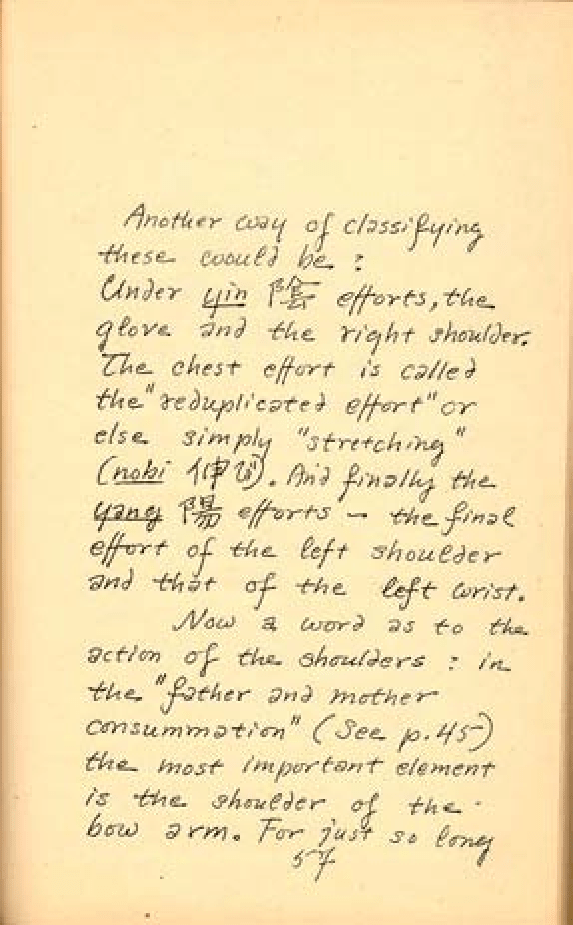 Another way of classifying
these would be :
Under yin 陰 efforts, the
glove and the right shoulder.
The chest effort is called
the "reduplicated effort" or
else simply "stretching"
(nobi 伸び). And finally the
yang 陽 efforts — the final
effort of the left shoulder
and that of the left wrist.
Now a word as to the
action of the shoulders : in
the "father and mother
consummation" (See p.45)
the most important element
is the shoulder of the
bow arm. For just so long
57